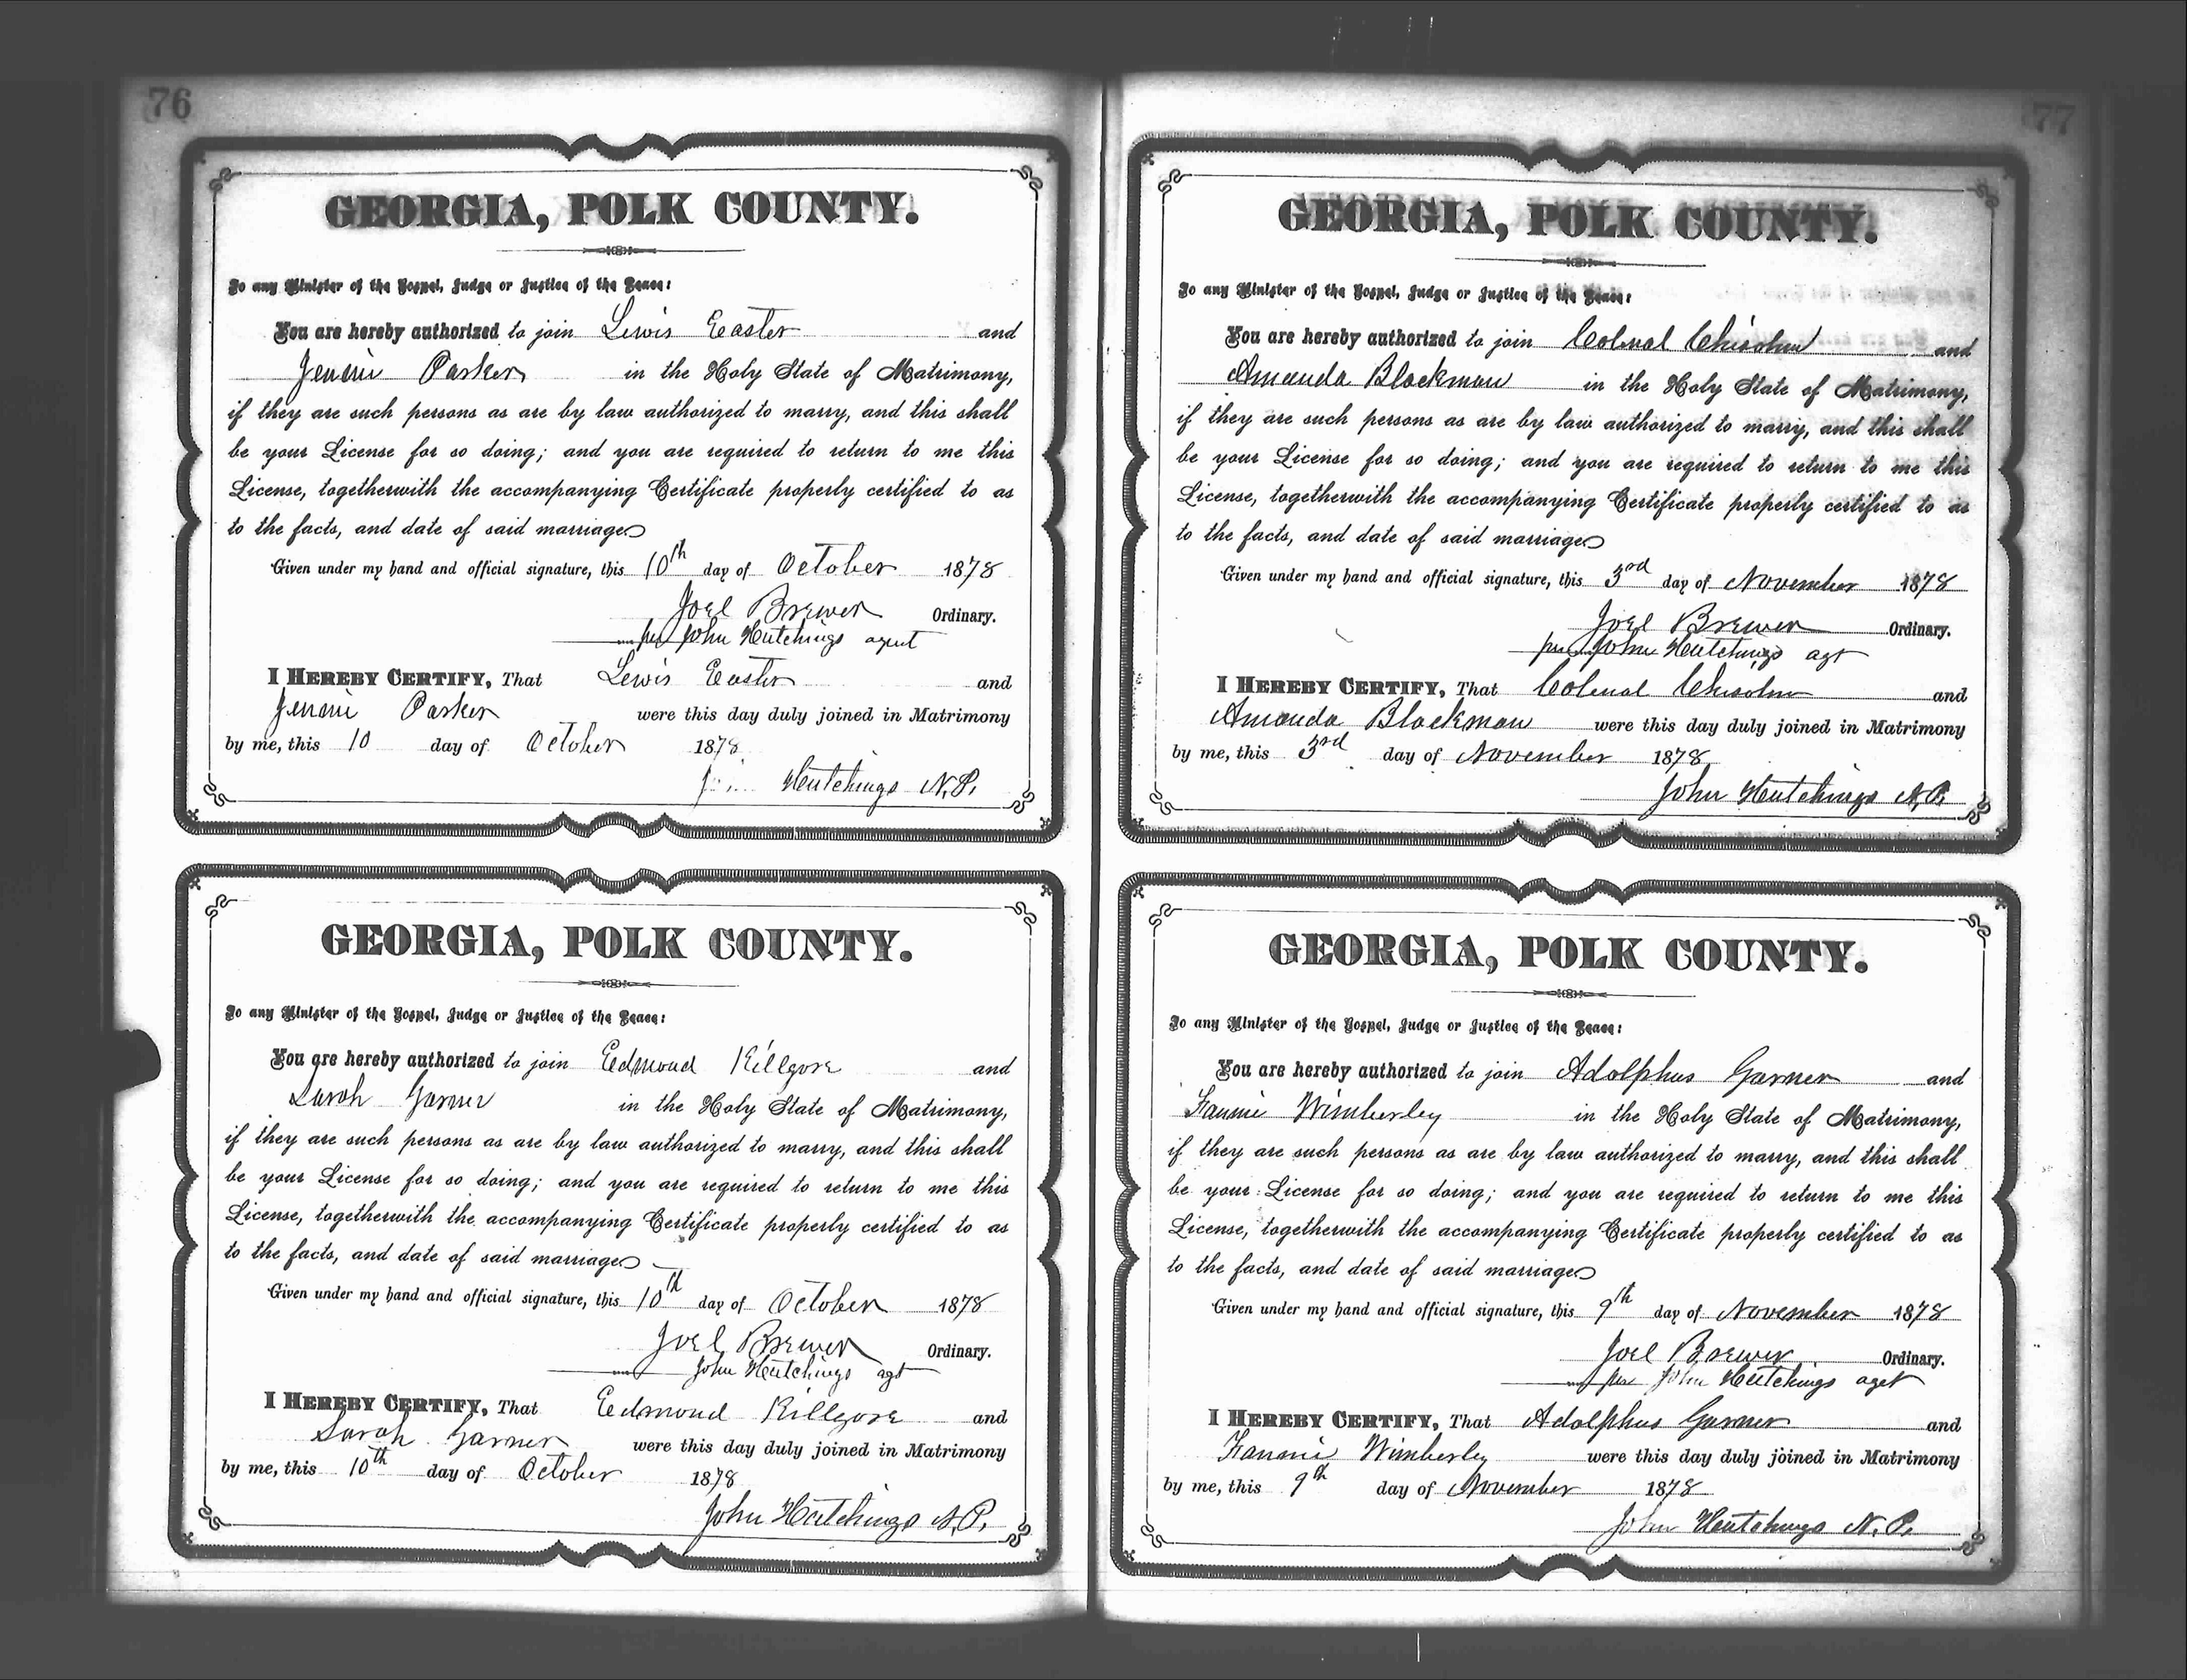 76
GEORGIA, POLK COUNTY.
To any Minister of the Gospel, Judge or Justice of the Peace:
You are hereby authorized to join Lewis Easter and
Jennie Parker in the Holy State of Matrimony,
if they are such persons as are by law authorized to marry, and this shall
be your License for so doing; and you are required to return to me this
License, togetherwith the accompanying Certificate properly certified to as
to the facts, and date of said marriage
Given under my hand and official signature, this 10th day of October 1878
Joel Brewer Ordinary.
per John Hutchings agent
I HEREBY CERTIFY, That Lewis Easter and
Jennie Parker were this day duly joined in Matrimony
by me, this 10 day of October 1878
Hutchings N.P.
GEORGIA, POLK COUNTY.
To any Minister of the Gospel, Judge or Justice of the Peace:
You are hereby authorized to join Edmond Killgore and
Sarah Garner in the Holy State of Matrimony,
if they are such persons as are by law authorized to marry, and this shall
be your License for so doing; and you are required to return to me this
License, togetherwith the accompanying Certificate properly certified to as
to the facts, and date of said marriage
Given under my hand and official signature, this 10th day of October 1878
Joel Brewer Ordinary.
John Hutchings agt
I HEREBY CERTIFY, That Edmond Killgore and
Sarah Garner were this day duly joined in Matrimony
by me, this 10th day of October 1878
John Hutchings N.P.
77
GEORGIA, POLK COUNTY.
To any Minister of the Gospel, Judge or Justice of the Peace:
You are hereby authorized to join Colonal Chisolm and
Amanda Blackman in the Holy State of Matrimony,
if they are such persons as are by law authorized to marry, and this shall
be your License for so doing; and you are required to return to me this
License, togetherwith the accompanying Certificate properly certified to as
to the facts, and date of said marriage
Given under my hand and official signature, this 3rd day of November 1878
Joel Brewer Ordinary.
per John Hutchings agt
I HEREBY CERTIFY, That Colonal Chisolm and
Amanda Blackman were this day duly joined in Matrimony
by me, this 3rd day of November 1878
John Hutchings N.P.
GEORGIA, POLK COUNTY.
To any Minister of the Gospel, Judge or Justice of the Peace:
You are hereby authorized to join Adolphus Garner and
Fannie Wimberley in the Holy State of Matrimony,
if they are such persons as are by law authorized to marry, and this shall
be your License for so doing; and you are required to return to me this
License, togetherwith the accompanying Certificate properly certified to as
to the facts, and date of said marriage
Given under my hand and official signature, this 9th day of November 1878
Joel Brewer Ordinary.
per John Hutchings aget
I HEREBY CERTIFY, That Adolphus Garner and
Fannie Wimberley were this day duly joined in Matrimony
by me, this 9th day of November 1878
John Hutchings N.P.